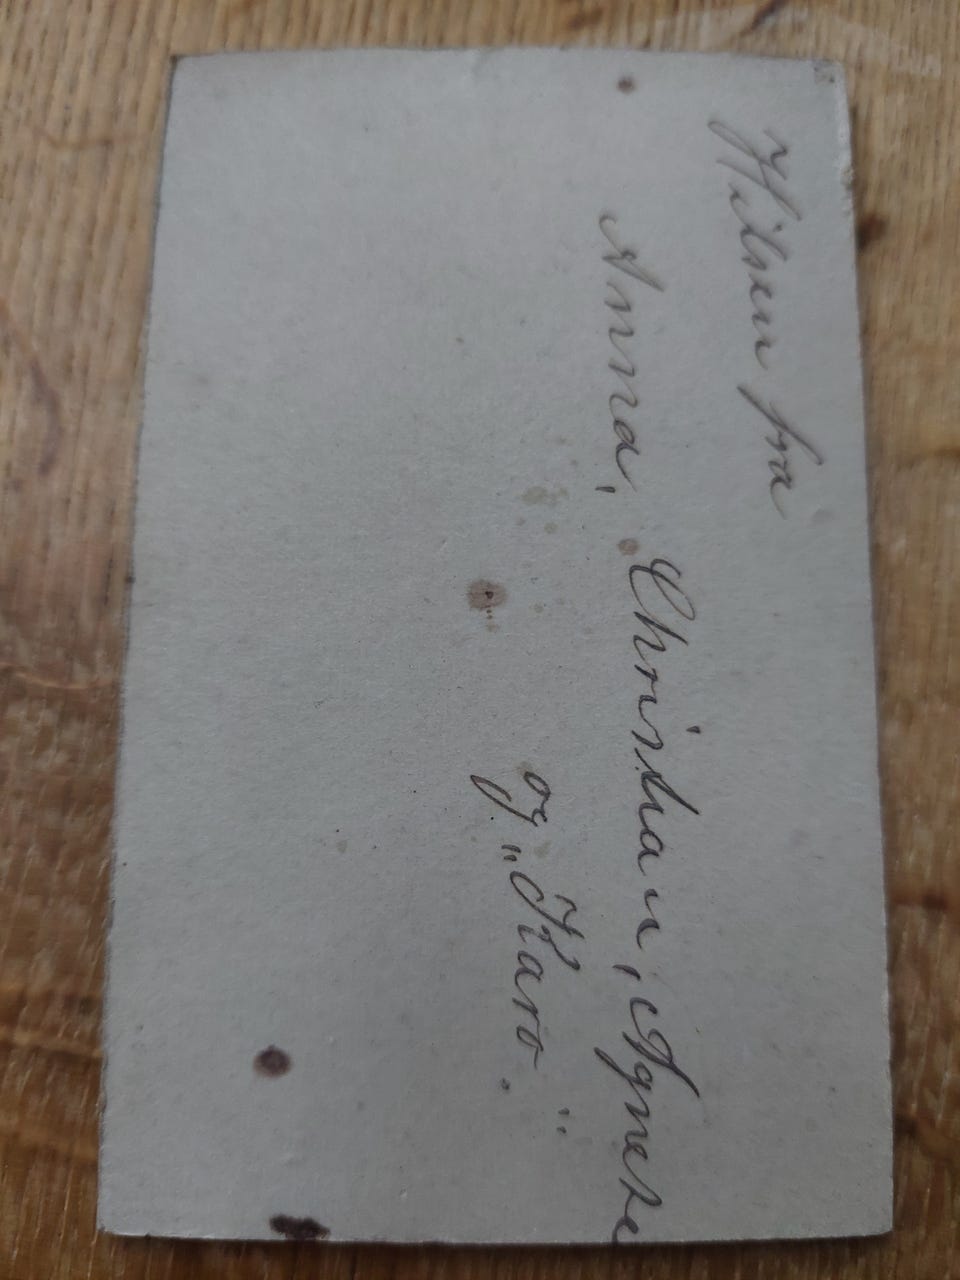 Hilsen fra
Anna, Christian, Agnete
og „Karo."